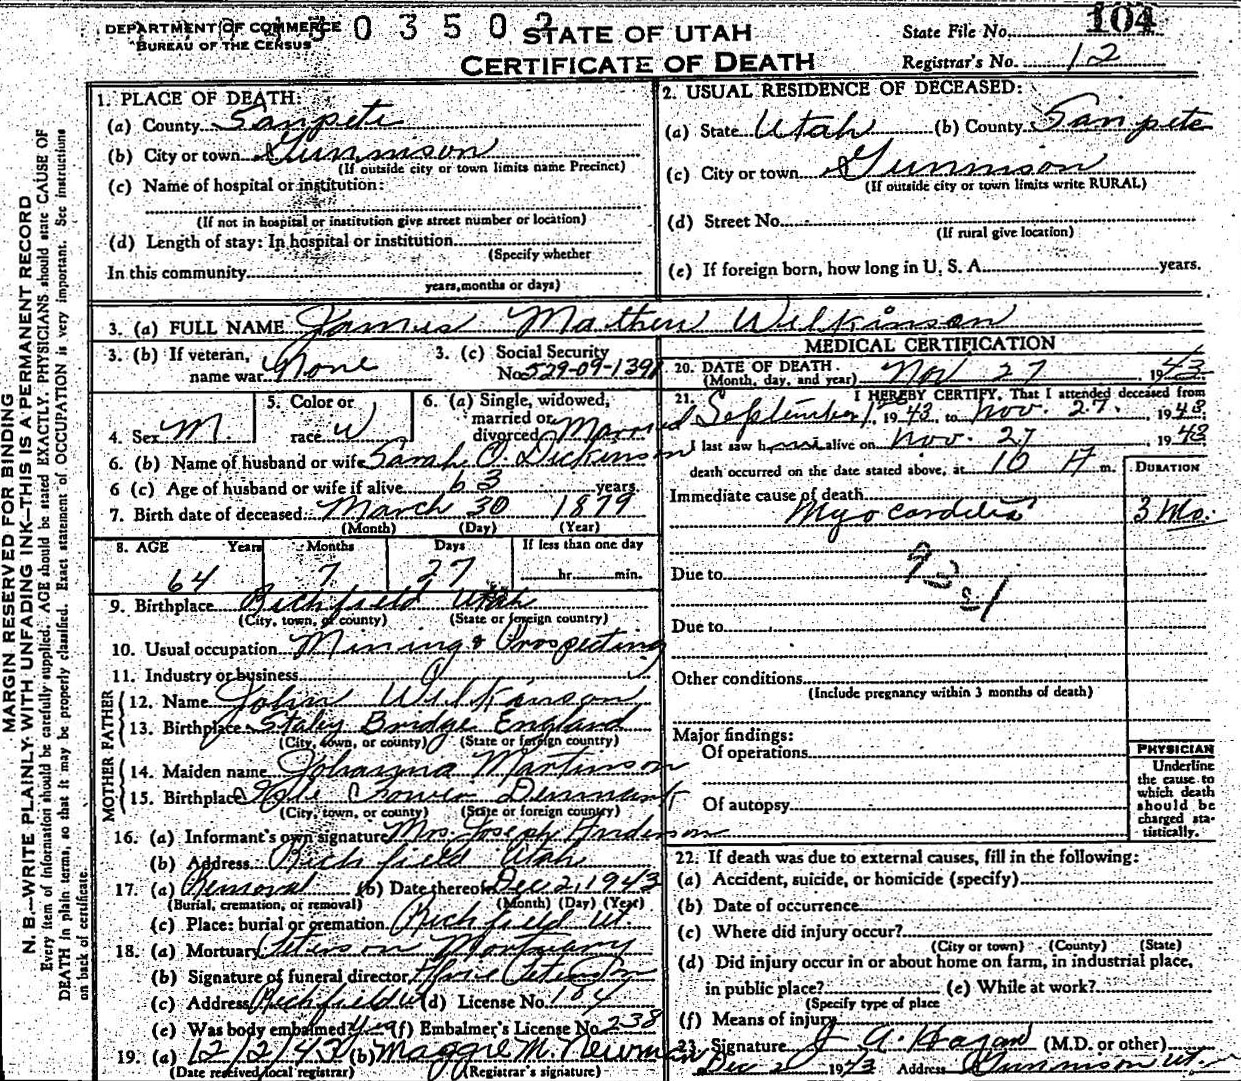 DEPARTMENT OF COMMERCE
BUREAU OF THE CENSUS
0 3 5 0
STATE OF UTAH
CERTIFICATE OF DEATH
State File No. 104
Registrar's No. 12
MARGIN RESERVED FOR BINDING
N. B.—WRITE PLAINLY, WITH UNFADING INK—THIS IS A PERMANENT RECORD
Every item of information should be carefully supplied. AGE should be stated EXACTLY. PHYSICIANS should state CAUSE OF
DEATH in plain terms, so that it may be properly classified. Exact statement of OCCUPATION is very important. See instructions
on back of certificate.
1. PLACE OF DEATH:
(a) County Sanpete
(b) City or town Gunnison
(If outside city or town limits name Precinct)
(c) Name of hospital or institution:
(If not in hospital or institution give street number or location)
(d) Length of stay: In hospital or institution
(Specify whether
In this community
years, months or days)
2. USUAL RESIDENCE OF DECEASED:
(a) State Utah (b) County Sanpete
(c) City or town Gunnison
(If outside city or town limits write RURAL)
(d) Street No.
(If rural give location)
(e) If foreign born, how long in U. S. A. years.
3. (a) FULL NAME James Mathew Wilkinson
3. (b) If veteran, name war None
3. (c) Social Security No. 529-09-139
4. Sex M.
5. Color or race W
6. (a) Single, widowed, married or divorced Married
6. (b) Name of husband or wife Sarah O. Dickinson
6 (c) Age of husband or wife if alive 63 years
7. Birth date of deceased: March 30 1879
(Month) (Day) (Year)
8. AGE Years Months Days If less than one day
64 7 27 hr. min.
9. Birthplace Richfield Utah
(City, town, or county) (State or foreign country)
10. Usual occupation Mining & Prospecting
11. Industry or business
FATHER
12. Name John Wilkinson
13. Birthplace Staley Bridge England
(City, town, or county) (State or foreign country)
MOTHER
14. Maiden name Johanna Martinson
15. Birthplace Denmark
(City, town, or county) (State or foreign country)
16. (a) Informant's own signature Mrs. Joseph Anderson
(b) Address Richfield Utah
17. (a) Removal (b) Date thereof Dec 2, 1943
(Burial, cremation, or removal) (Month) (Day) (Year)
(c) Place: burial or cremation Richfield Ut.
18. (a) Mortuary Peterson Mortuary
(b) Signature of funeral director
(c) Address Richfield U (d) License No. 104
(e) Was body embalmed? yes (f) Embalmer's License No. 238
19. (a) 12/2/43 (b) Maggie M. Newman
(Date received local registrar) (Registrar's signature)
MEDICAL CERTIFICATION
20. DATE OF DEATH
(Month, day, and year) Nov 27 1943
21. I HEREBY CERTIFY, That I attended deceased from
September 1st 1943, to Nov. 27. 1943
I last saw him alive on Nov. 27 1943
death occurred on the date stated above, at 10 m.
DURATION
Immediate cause of death
Myocarditis 3 Mo.
Due to
Due to
Other conditions
(Include pregnancy within 3 months of death)
Major findings:
Of operations
Of autopsy
PHYSICIAN
Underline
the cause to
which death
should be
charged sta-
tistically.
22. If death was due to external causes, fill in the following:
(a) Accident, suicide, or homicide (specify)
(b) Date of occurrence
(c) Where did injury occur?
(City or town) (County) (State)
(d) Did injury occur in or about home on farm, in industrial place,
in public place? (e) While at work?
(Specify type of place
(f) Means of injury
23. Signature J A. Hagan (M.D. or other)
Dec 2 1943 Address Gunnison Ut.